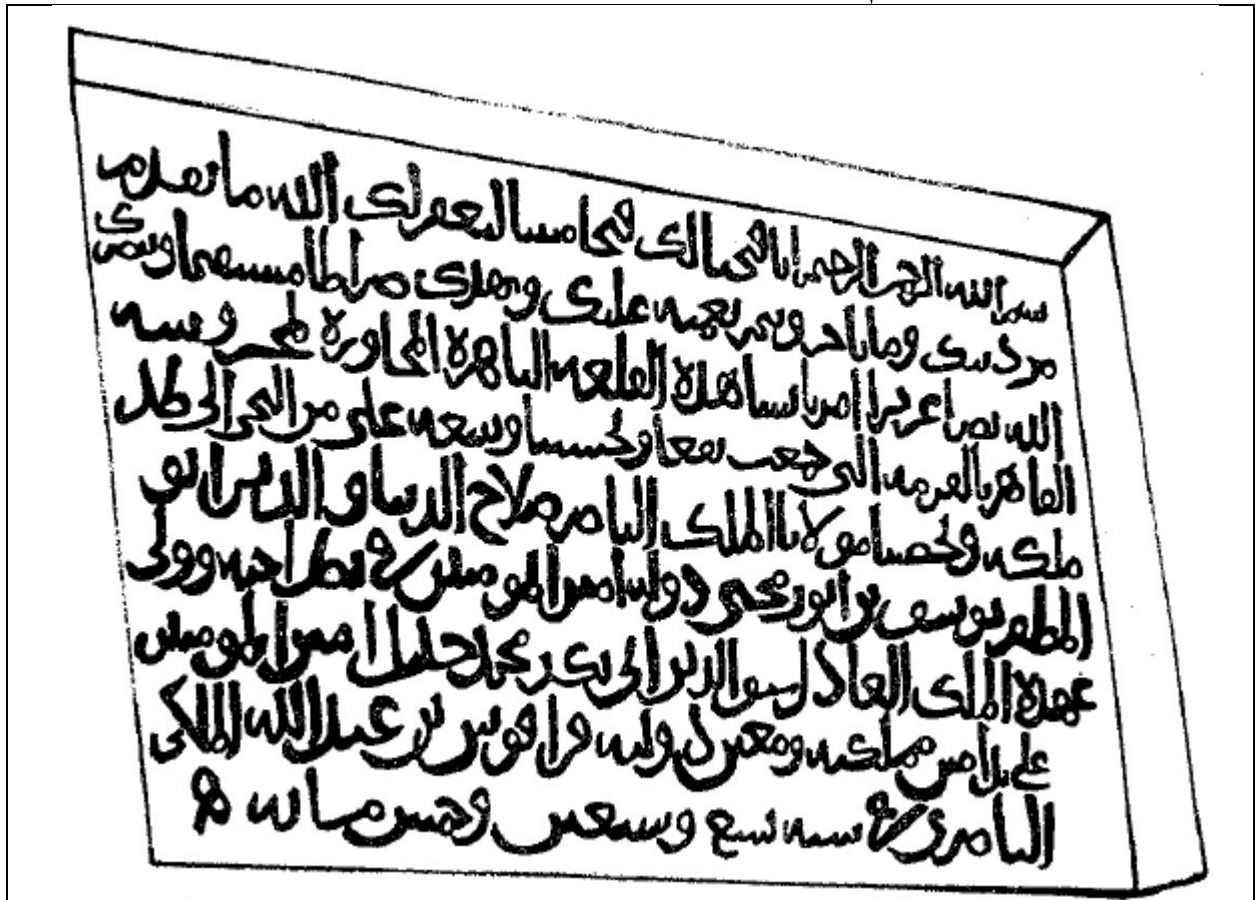 بسم الله الرحمن الرحيم انا فتحنا لك فتحا مبينا ليغفر لك الله ما تقدم
من ذنبك وما تاخر ويتم نعمته عليك ويهديك صراطا مستقيما وينصرك
الله نصرا عزيزا امر بانشا هذه القلعة الباهرة المجاورة لمحروسة
القاهرة بالعرمة التي جمعت نفعا وتحسينا وسعة على من التجى الى ظل
ملكه وتحصينا مولانا الملك الناصر صلاح الدنيا والدين ابو
المظفر يوسف بن ايوب محيي دولة امير المومنين في نظر اخيه وولي
عهده الملك العادل سيف الدين ابي بكر محمد خليل امير المومنين
على يد امير مملكته ومعين دولته قراقوش بن عبد الله الملكي
الناصري في سنة تسع وسبعين وخمس مائة